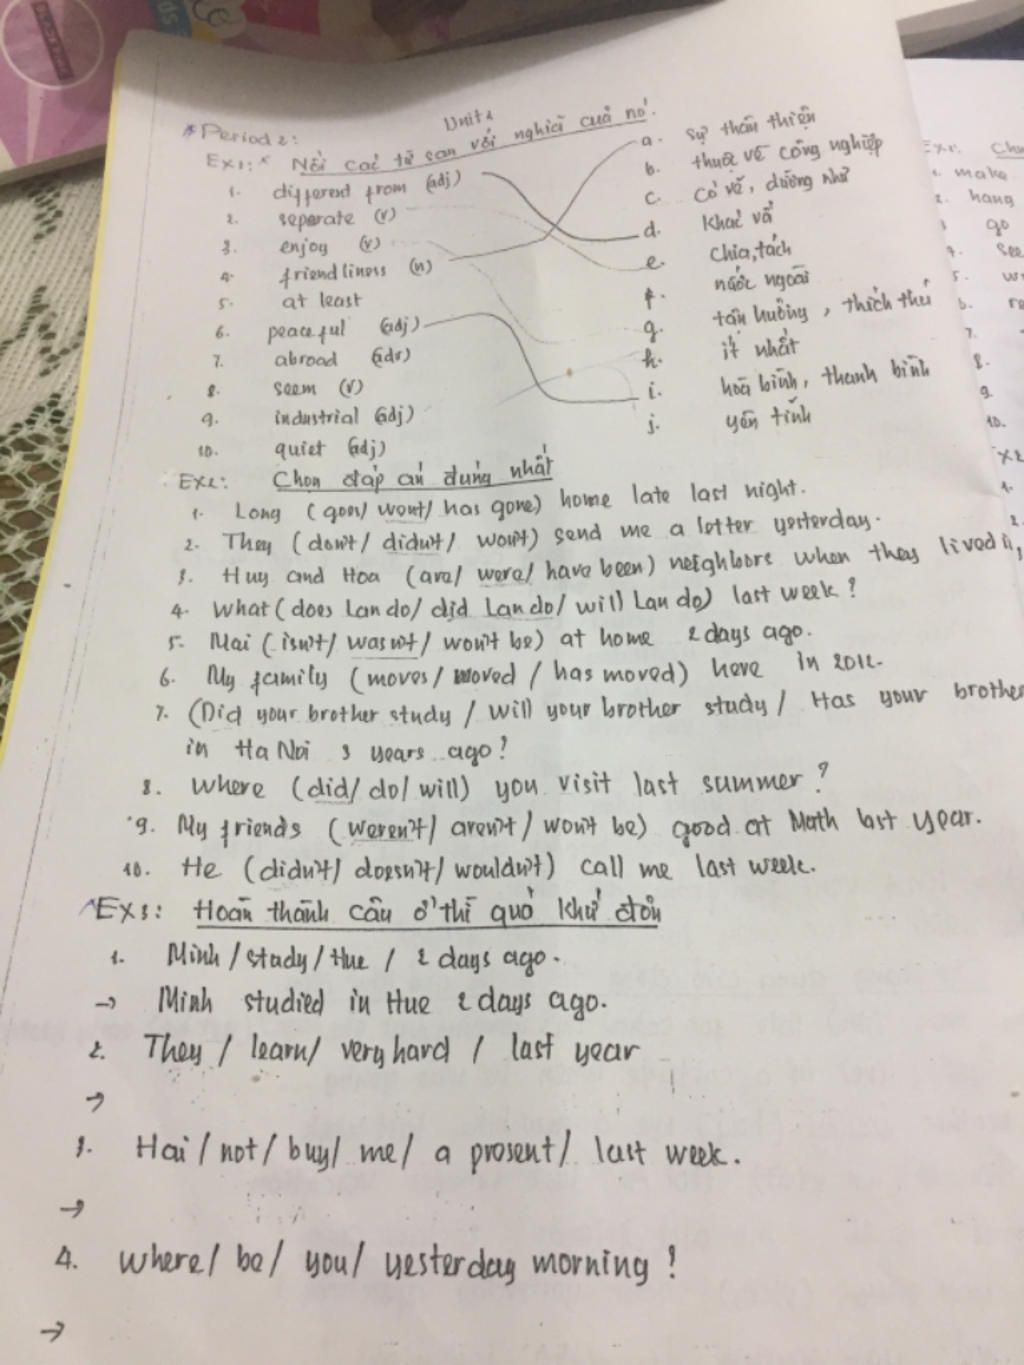 Unit 1
* Period 2:
Ex1: * Nối các từ sau với nghĩa của nó.
1. different from (adj)
2. seperate (v)
3. enjoy (v)
4. friendliness (n)
5. at least
6. peaceful (adj)
7. abroad (adv)
8. seem (v)
9. industrial (adj)
10. quiet (adj)
a. sự thân thiện
b. thuộc về công nghiệp
c. có vẻ, dường như
d. khác với
e. chia, tách
f. nước ngoài
g. tận hưởng, thích thú
h. ít nhất
i. hoà bình, thanh bình
j. yên tĩnh
Ex2: Chọn đáp án đúng nhất
1. Long (goes/ went/ has gone) home late last night.
2. They (don't/ didn't/ won't) send me a letter yesterday.
3. Huy and Hoa (are/ were/ have been) neighbors when they lived in
4. What (does Lan do/ did Lan do/ will Lan do) last week?
5. Mai (isn't/ wasn't/ won't be) at home 2 days ago.
6. My family (moves/ moved / has moved) here in 2012.
7. (Did your brother study / will your brother study / Has your brother
in Ha Noi 3 years ago?
8. Where (did/ do/ will) you visit last summer?
9. My friends (weren't/ aren't / won't be) good at Math last year.
10. He (didn't/ doesn't/ wouldn't) call me last week.
Ex3: Hoàn thành câu ở thì quá khứ đơn
1. Minh / study / Hue / 2 days ago.
→ Minh studied in Hue 2 days ago.
2. They / learn/ very hard / last year
→
3. Hai / not / buy/ me/ a present/ last week.
→
4. where/ be/ you/ yesterday morning?
→
1. make
2. hang
3 go
4. see
5.
6.
7.
8.
9.
10.
1.
2.